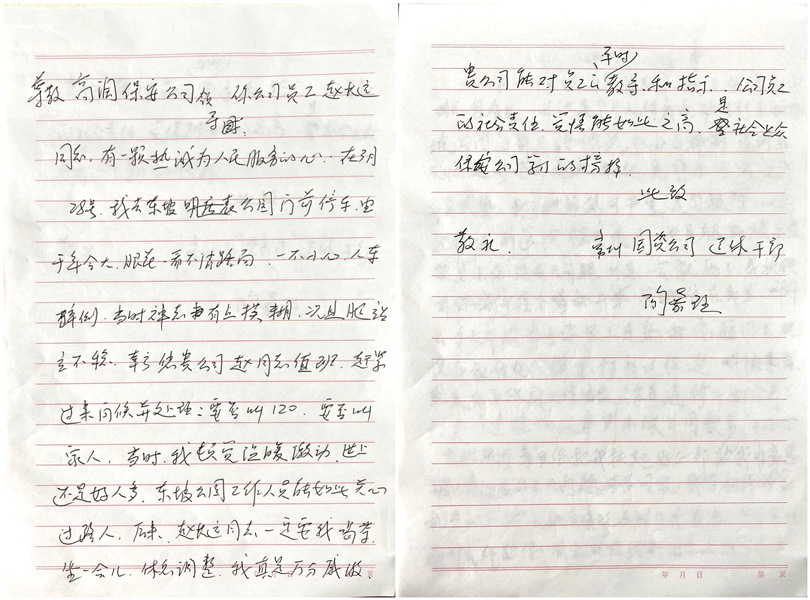 尊敬高润保安公司领导: 你公司员工赵大运
同志,有一颗热诚为人民服务的心,在3月
28号,我去东坡公园门前停车,由
于年令大,眼花,看不清路面,一不小心,人车
摔倒,当时神志有点模糊,况且腿站
立不稳,幸亏贵公司赵同志值班,赶紧
过来问候并处理:要否叫120,要否叫
家人,当时,我顿觉温暖激动,世上
还是好人多,东坡公园工作人员能如此关心
过路人,后来,赵大运同志一定要我喝茶,
坐一会儿,休息调整,我真是万分感激,
平时
贵公司能对员工教导和指示,公司员工
的社会责任,觉悟能如此之高,是社会公众
保安公司学习的榜样,
此致
敬礼, 常州国资公司退休干部
年 月 日 第 页